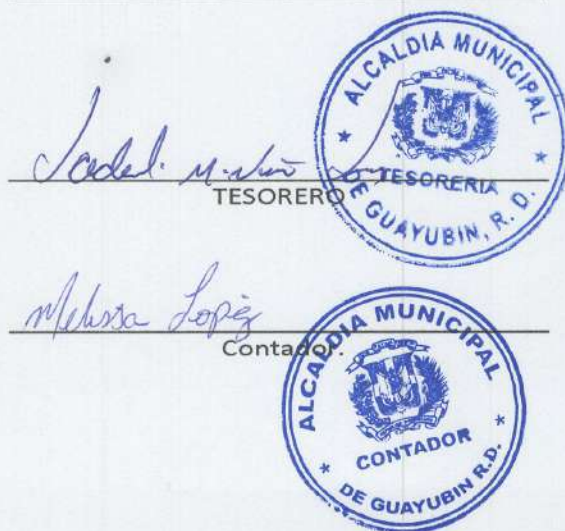 ALCALDIA MUNICIPAL
TESORERIA
DE GUAYUBIN, R. D.
TESORERO
Melissa Lopez
Contador.
ALCALDIA MUNICIPAL
CONTADOR
DE GUAYUBIN R.D.